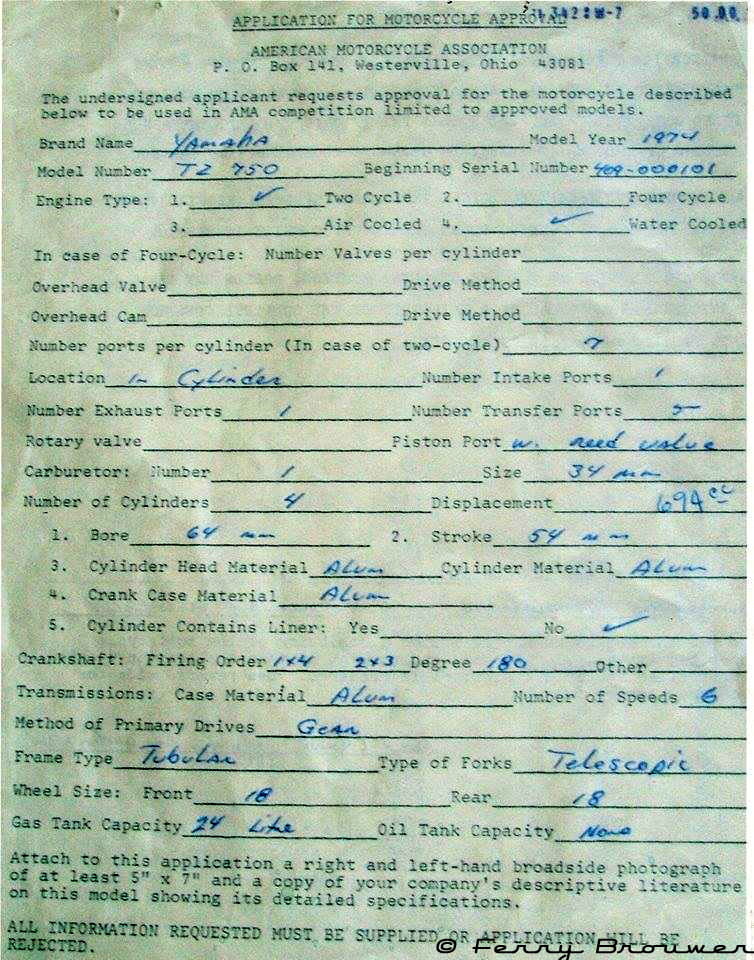 APPLICATION FOR MOTORCYCLE APPROVAL 50.00
AMERICAN MOTORCYCLE ASSOCIATION
P. O. Box 141, Westerville, Ohio 43081
The undersigned applicant requests approval for the motorcycle described
below to be used in AMA competition limited to approved models.
Brand Name Yamaha Model Year 1974
Model Number TZ 750 Beginning Serial Number 409-000101
Engine Type: 1. ✓ Two Cycle 2. Four Cycle
3. Air Cooled 4. ✓ Water Cooled
In case of Four-Cycle: Number Valves per cylinder
Overhead Valve Drive Method
Overhead Cam Drive Method
Number ports per cylinder (In case of two-cycle) 7
Location in Cylinder Number Intake Ports 1
Number Exhaust Ports 1 Number Transfer Ports 5
Rotary valve Piston Port w. reed valve
Carburetor: Number 1 Size 34 mm
Number of Cylinders 4 Displacement 694 cc
1. Bore 64 mm 2. Stroke 54 mm
3. Cylinder Head Material Alum Cylinder Material Alum
4. Crank Case Material Alum
5. Cylinder Contains Liner: Yes No ✓
Crankshaft: Firing Order 1x4 2x3 Degree 180 Other
Transmissions: Case Material Alum Number of Speeds 6
Method of Primary Drives Gear
Frame Type Tubular Type of Forks Telescopic
Wheel Size: Front 18 Rear 18
Gas Tank Capacity 24 Litre Oil Tank Capacity None
Attach to this application a right and left-hand broadside photograph
of at least 5" x 7" and a copy of your company's descriptive literature
on this model showing its detailed specifications.
ALL INFORMATION REQUESTED MUST BE SUPPLIED OR APPLICATION WILL BE
REJECTED.
© Ferry Brouwer